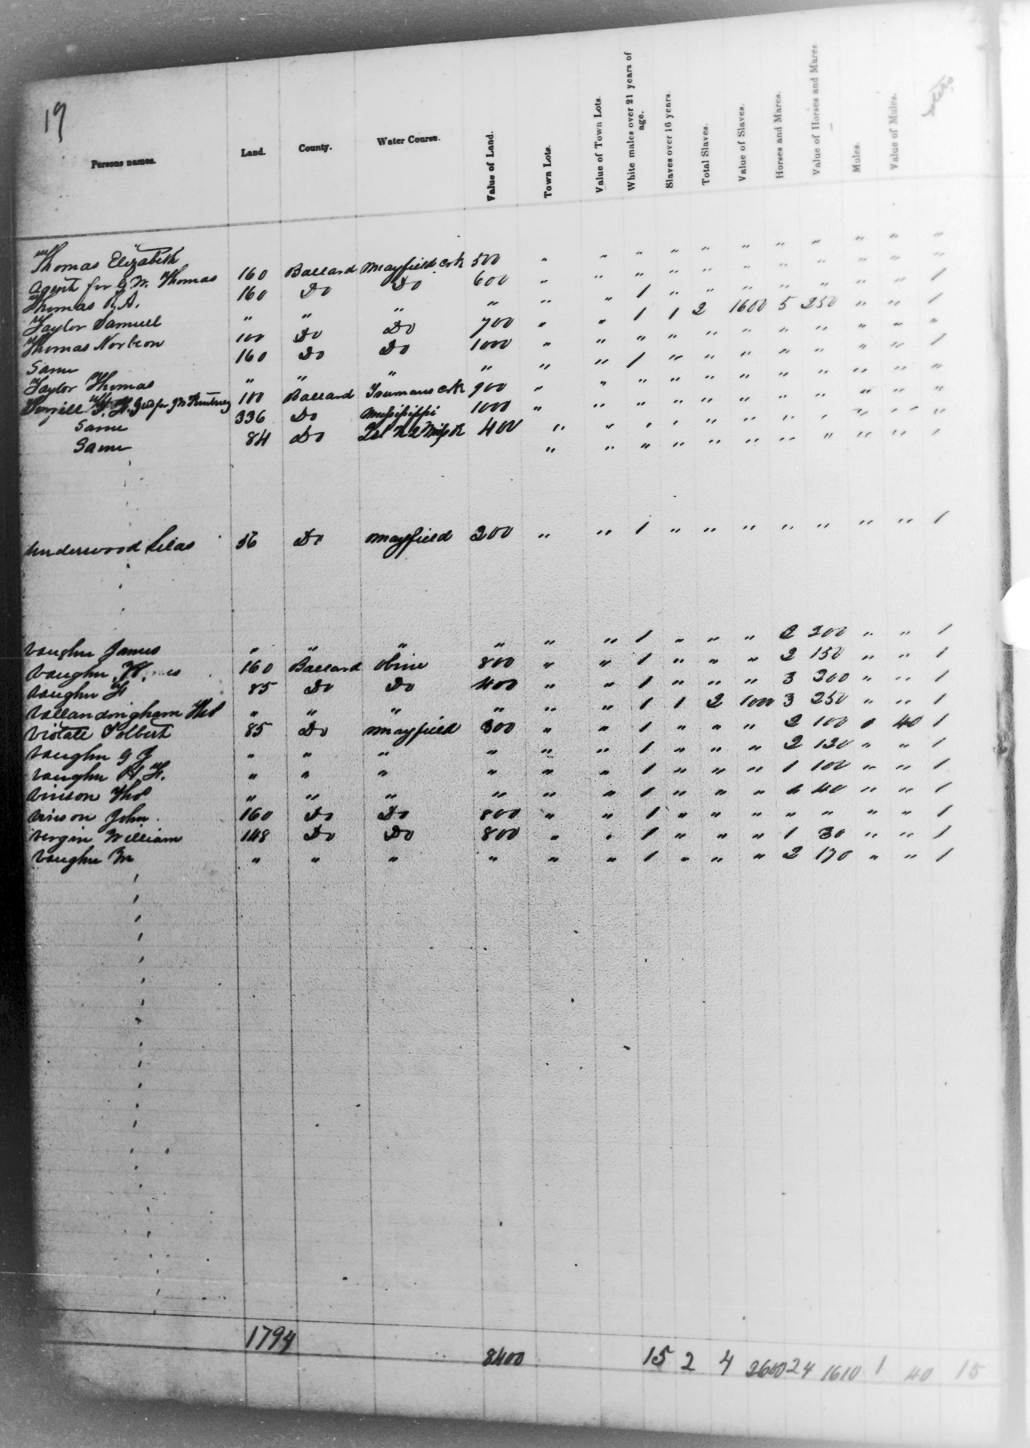 19
Persons names. Land. County. Water Course. Value of Land. Town Lots. Value of Town Lots. White males over 21 years of age. Slaves over 16 years. Total Slaves. Value of Slaves. Horses and Mares. Value of Horses and Mares. Mules. Value of Mules.
Thomas Elizabeth
Agent for G. W. Thomas 160 Ballard Mayfield Crk 500 " " " " " " " " " " "
Thomas R. A. 160 Do Do 600 " " 1 " " " " " " " 1
Taylor Samuel " " " " " " 1 1 2 1600 5 250 " " 1
Thomas Norton 100 Do Do 700 " " " " " " " " " " "
Same 160 Do Do 1000 " " 1 " " " " " " " 1
Taylor Thomas " " " " " " " " " " " " " "
100 Ballard Crk 900 " " " " " " " " " "
Same 336 Do Mississippi 1000 " " " " " " " " " "
Same 84 Do 400 " " " " " " " " " "
Underwood Silas 56 Do Mayfield 200 " " 1 " " " " " " " 1
Vaughn James " " " " " " 1 " " " 2 200 " " 1
Vaughn 160 Ballard Obine 800 " " 1 " " " 2 150 " " 1
Vaughn F 85 Do Do 400 " " 1 " " " 3 200 " " 1
Vallandingham Thos " " " " " " 1 1 2 1000 3 250 " " 1
Tolbert 85 Do Mayfield 300 " " 1 " " " 2 100 40 1
Vaughn G " " " " " " 1 " " " 2 120 " " 1
Vaughn H. F. " " " " " " 1 " " " 1 100 " " 1
Vinson Thos " " " " " " 1 " " " 40 " " 1
Vinson John 160 Do Do 800 " " 1 " " " " " " " 1
Vergin William 148 Do Do 800 " " 1 " " " 1 30 " " 1
Vaughn Wm " " " " " " 1 " " " 2 170 " " 1
1794 8400 15 2 4 2600 24 1610 1 40 15